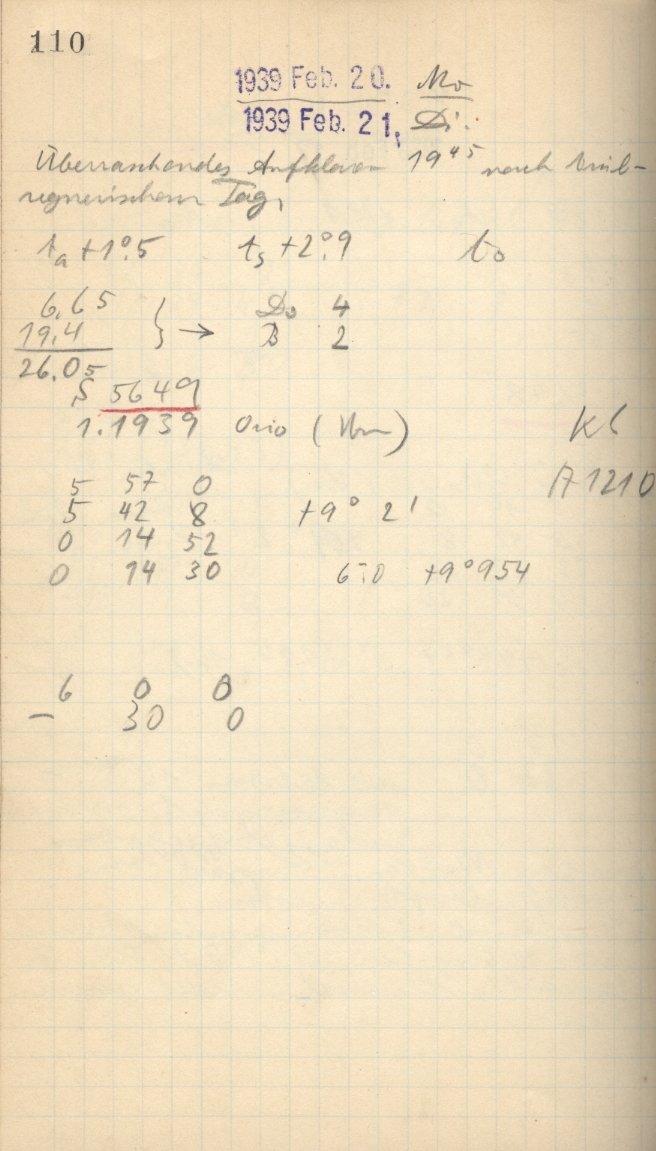 110
1939 Feb. 20. Mo
1939 Feb. 21. Di.
Überraschendes Aufklaren 19⁴⁵ nach trüb-
regnerischem Tag.
tₐ +1°.5 tₛ +2°.9 t₀
6,65 Do 4
19,4 } → B 2
26,05
S 5649
1.1939 Orio
Kl
A 1210
5 57 0
5 42 8 +9° 2'
0 14 52
0 14 30 6:0 +9°954
6 0 0
– 30 0